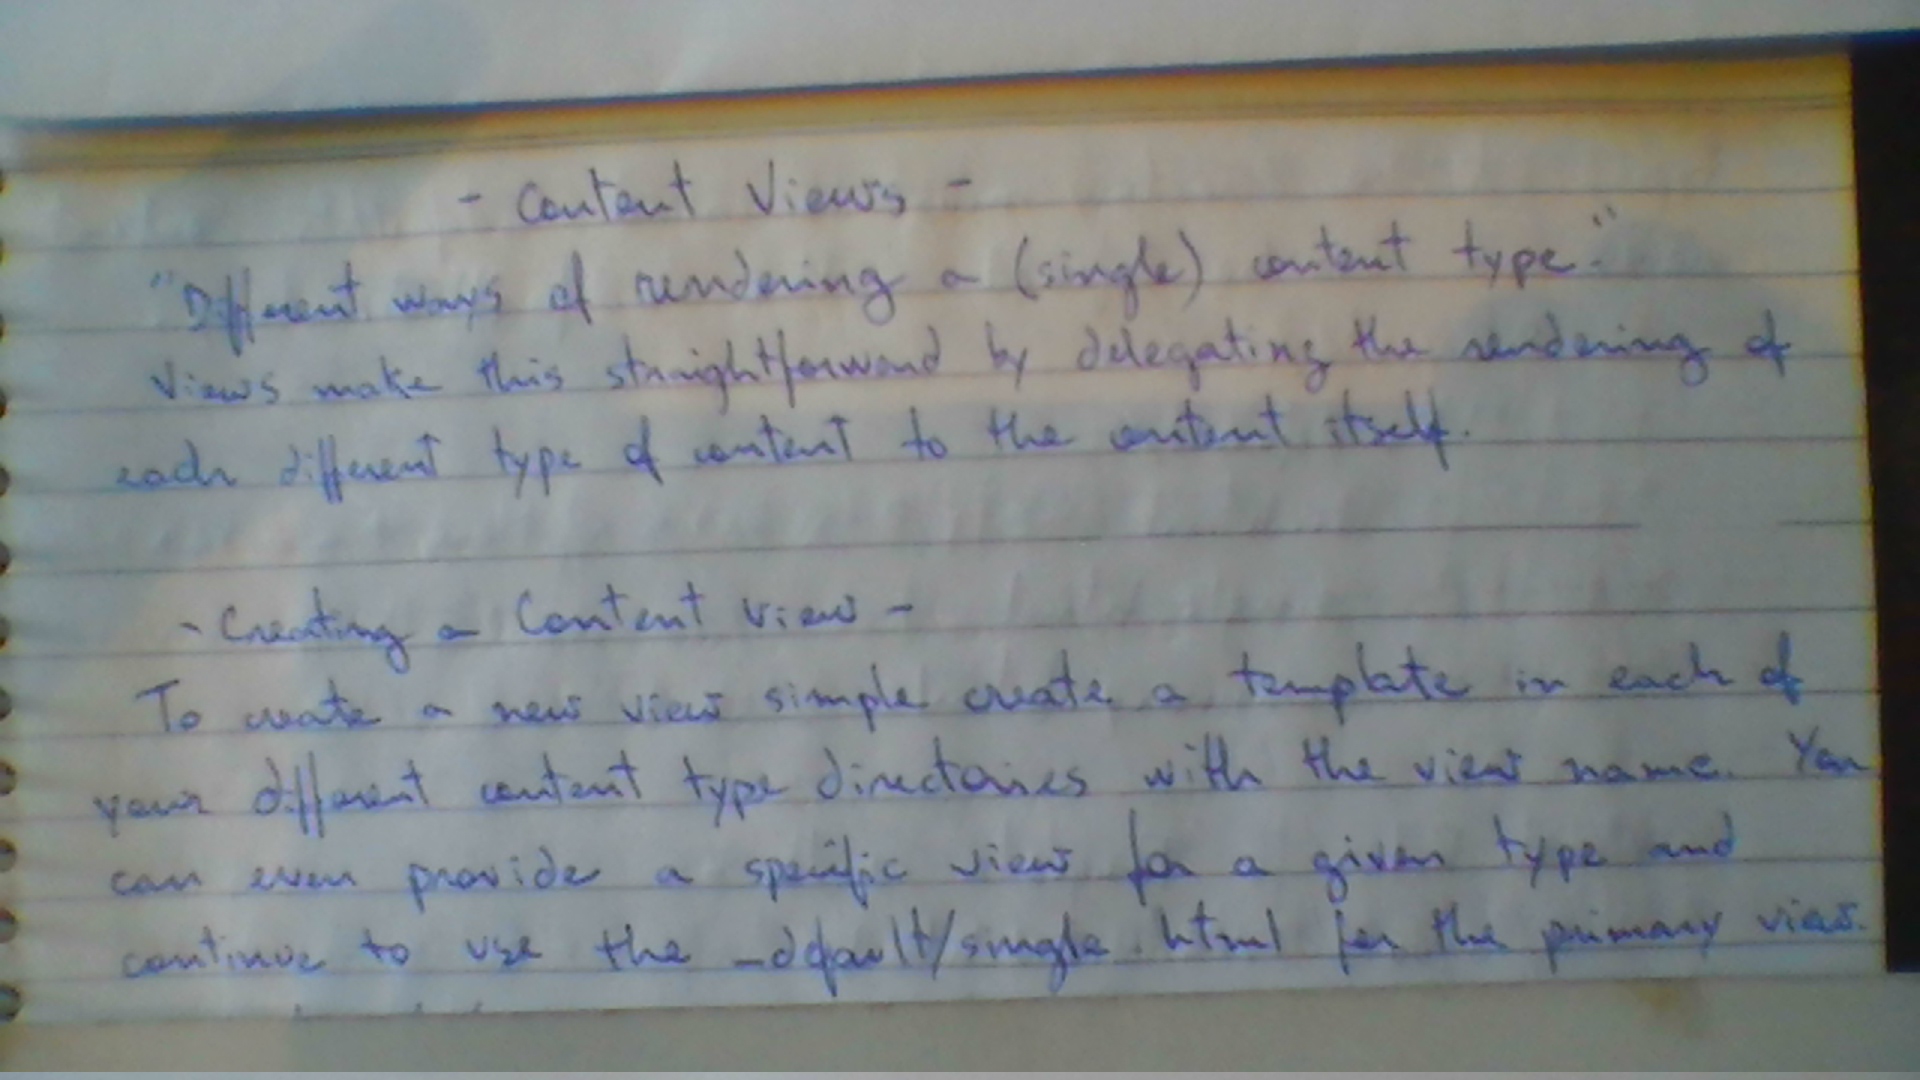 - Content Views -
"Different ways of rendering a (single) content type."
Views make this straightforward by delegating the rendering of
each different type of content to the content itself.
- Creating a Content view -
To create a new view simple create a template in each of
your different content type directories with the view name. You
can even provide a specific view for a given type and
continue to use the _default/single.html for the primary view.